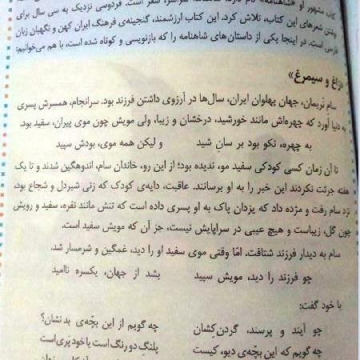 کتاب مشهور او «شاهنامه» نام دارد، شاهنامه، سراسر، شعر است. فردوسی نزدیک به سی سال برای
سرودن شعرهای این کتاب، تلاش کرد. این کتاب ارزشمند، گنجینه‌ی فرهنگ ایران کهن و نگهبان زبان
فارسی است. در اینجا یکی از داستان‌های شاهنامه را که بازنویسی و کوتاه شده است، با هم می‌خوانیم:
«زال و سیمرغ»
سام نریمان، جهان پهلوان ایران، سال‌ها در آرزوی داشتن فرزند بود. سرانجام، همسرش پسری
به دنیا آورد که چهره‌اش مانند خورشید، درخشان و زیبا، ولی مویش چون موی پیران، سفید بود.
به چهره، نکو بود بر سان شید
و لیکن همه موی، بودش سپید
تا آن زمان کسی کودکی سفید مو، ندیده بود؛ از این رو، خاندان سام، اندوهگین شدند و تا یک
هفته جرئت نکردند این خبر را به او برسانند. عاقبت، دایه‌ی کودک که زنی شیردل و شجاع بود،
نزد سام رفت و مژده داد که یزدان پاک به او پسری داده است که تنش مانند نقره، سفید و رویش
چون گل، زیباست و هیچ عیبی در سراپایش نیست، جز آن که مویش سفید است.
سام به دیدار فرزند شتافت. امّا وقتی موی سفید او را دید، غمگین و شرمسار شد.
چو فرزند را دید، مویش سپید
بشد از جهان، یکسره ناامید
با خود گفت:
چو آیند و پرسند، گردن‌کشان
چه گویم از این بچّه‌ی بدنشان؟
چه گویم که این بچّه‌ی دیو، کیست
پلنگ دو رنگ است یا خود پری است